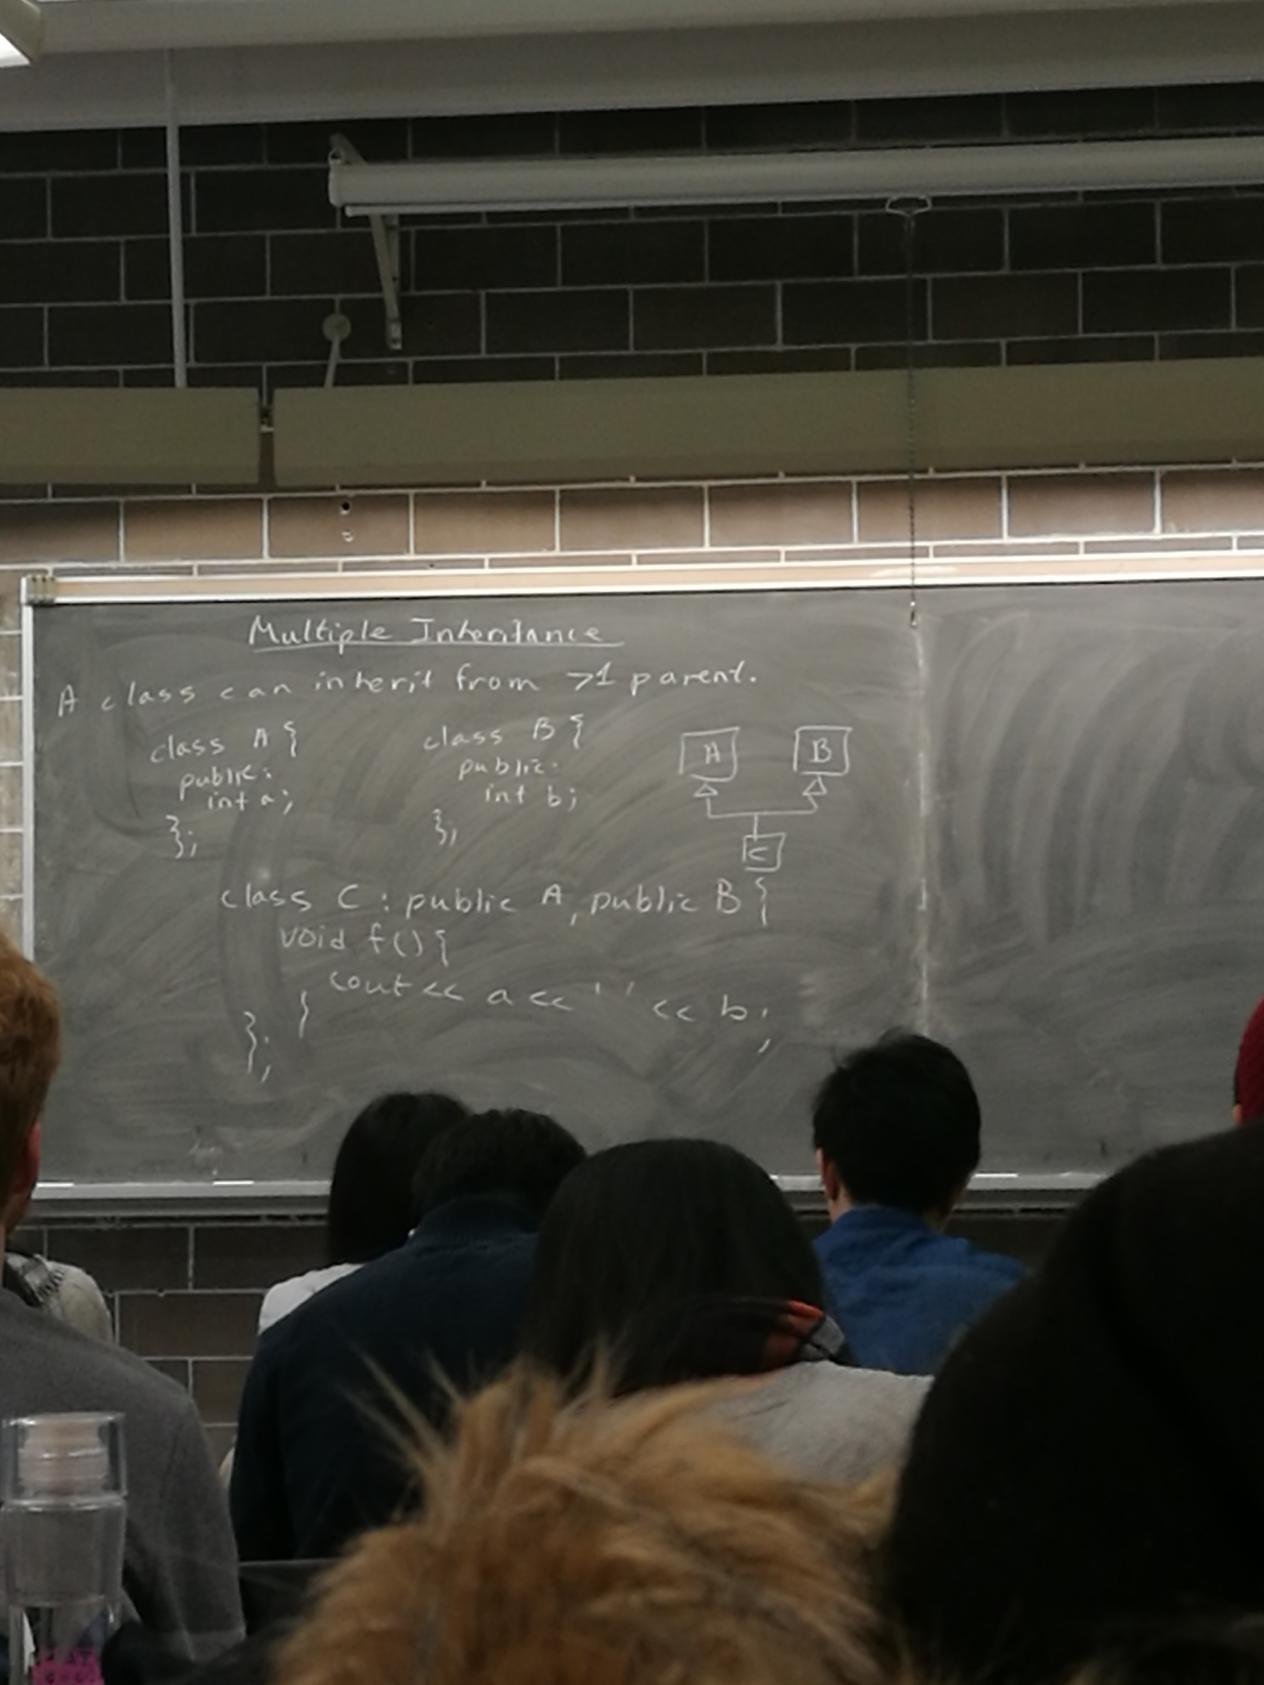 Multiple Inheritance
A class can inherit from >1 parent.
class A {
public:
int a;
};
class B {
public:
int b;
};
A
B
C
class C : public A, public B {
void f() {
cout << a << ' ' << b;
}
};